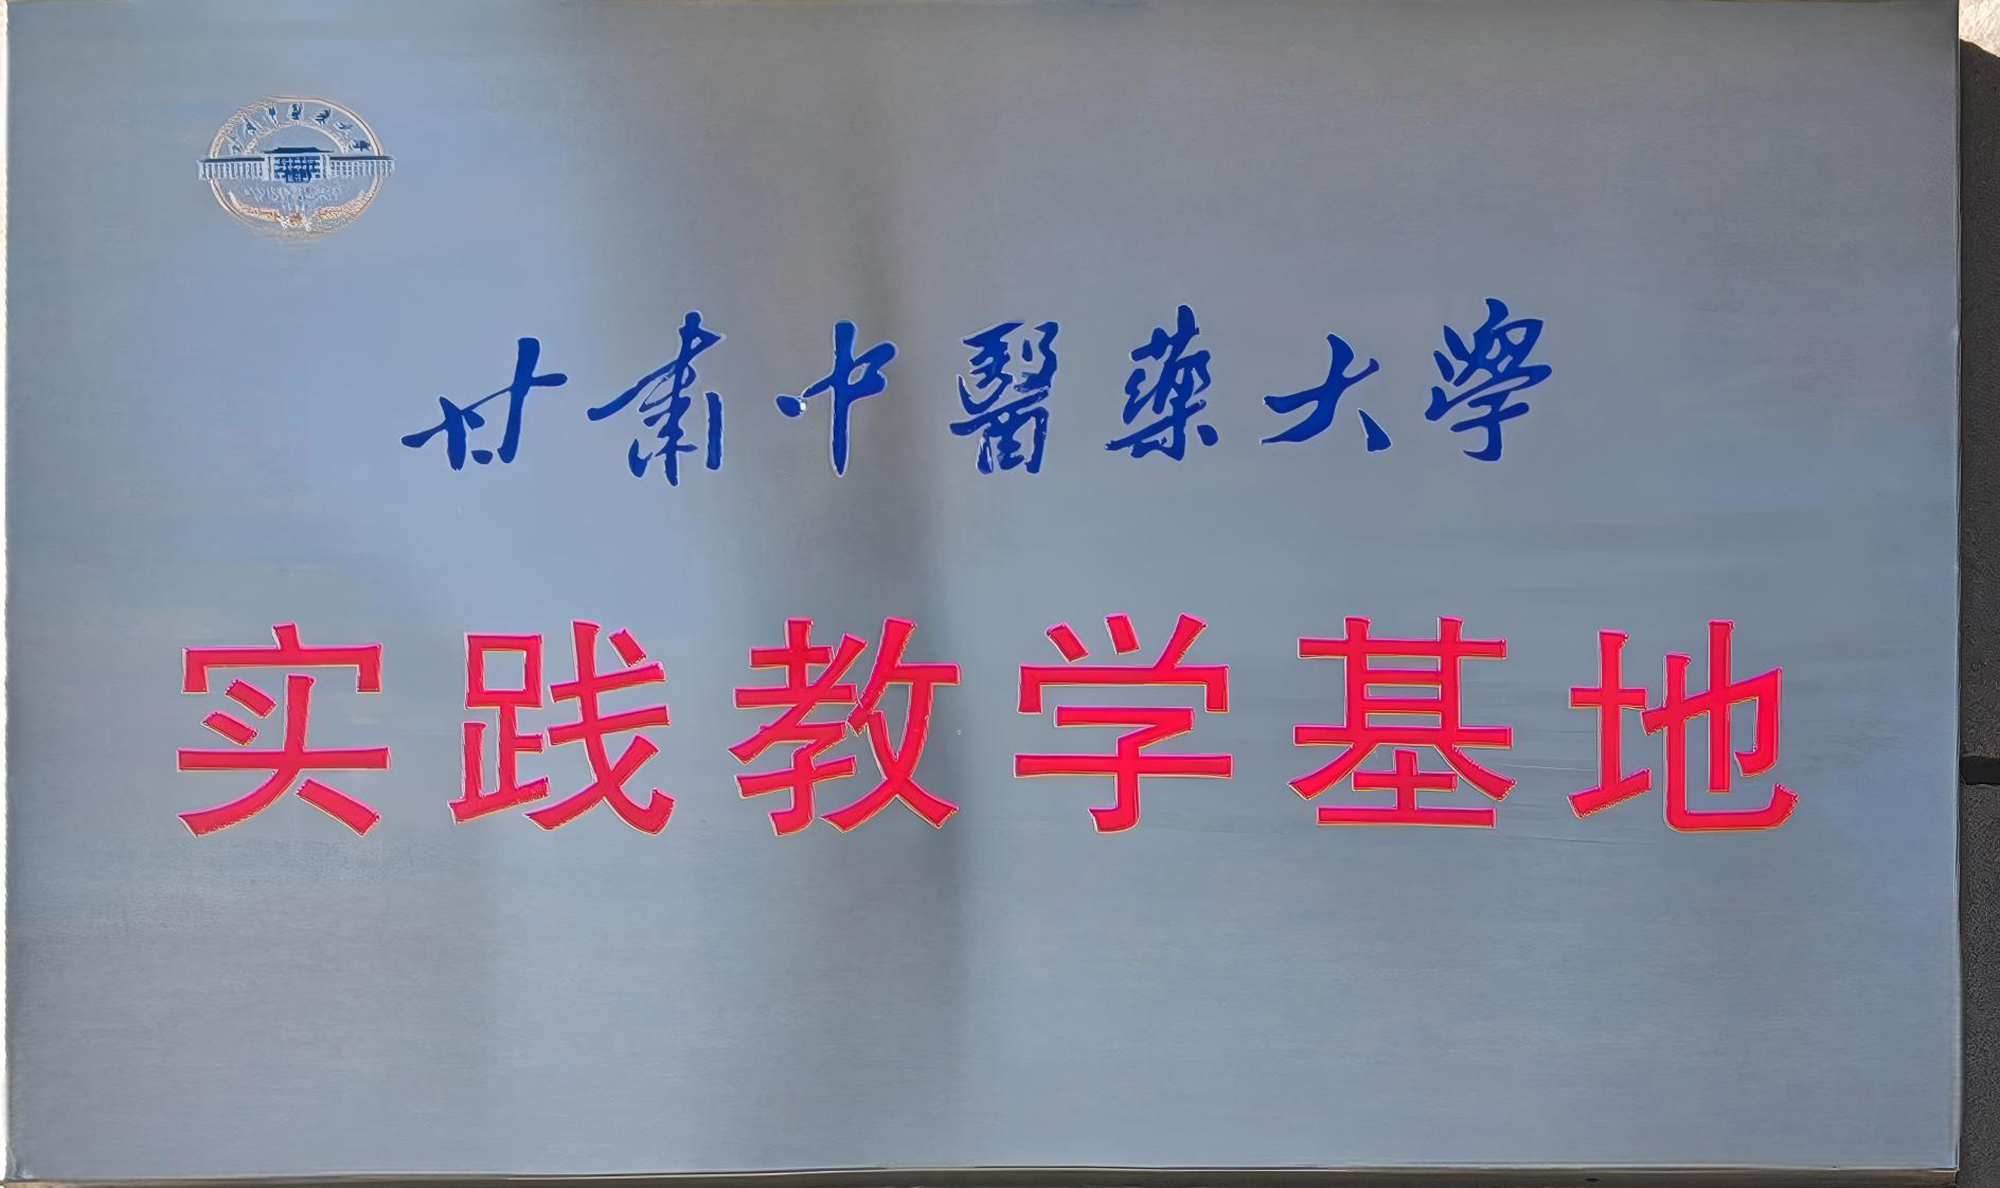 甘肅中醫藥大學
实践教学基地